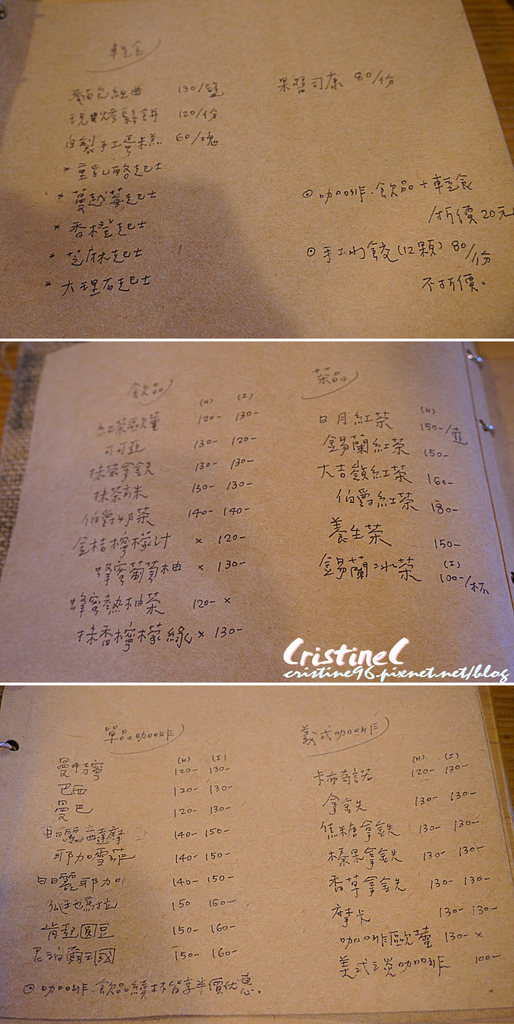 輕食
麵包組曲 130/籃
現烤鬆餅 120/份
自製手工蛋糕 60/塊
* 重乳酪起士
* 蔓越莓起士
* 香橙起士
* 芝麻起士
* 大理石起士
果醬司康 80/份
⊙ 咖啡.飲品+輕食
折價20元
⊙ 手工水餃(12顆) 80/份
不折價。
飲品
(H) (I)
紅茶歐蕾 120- 130-
可可亞 130- 120-
抹茶拿鐵 130- 130-
抹茶 130- 130-
伯爵奶茶 140- 140-
金桔檸檬汁 × 120-
蜂蜜葡萄柚 × 130-
蜂蜜熱柚茶 120- ×
抹香檸檬綠 × 130-
茶品
(H)
日月紅茶 150-/壺
錫蘭紅茶 150-
大吉嶺紅茶 160-
伯爵紅茶 180-
養生茶 150-
(I)
錫蘭冰茶 100-/杯
CristineC
cristine96.pixnet.net/blog
單品咖啡
(H) (I)
曼特寧 120- 130-
巴西 120- 130-
曼巴 120- 130-
140- 150-
耶加雪菲 140- 150-
耶加 140- 150-
150 160-
肯亞圓豆 150- 160-
150- 160-
⊙ 咖啡.飲品續杯皆享半價優惠。
義式咖啡
(H) (I)
卡布奇諾 120- 130-
拿鐵 130- 130-
焦糖拿鐵 130- 130-
榛果拿鐵 130- 130-
香草拿鐵 130- 130-
摩卡 130- 130-
咖啡歐蕾 130- ×
美式淡咖啡 100-